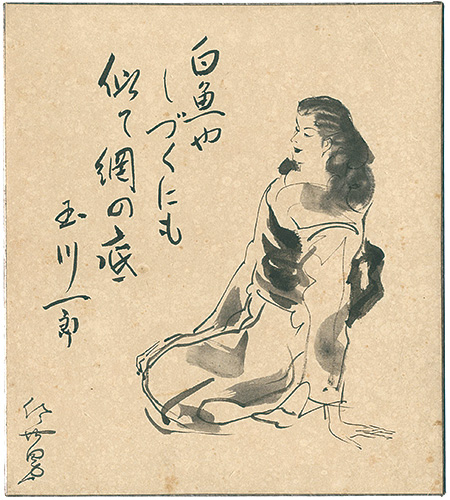 白魚や
しづくにも
似て網の底
玉川一郎
佐世男